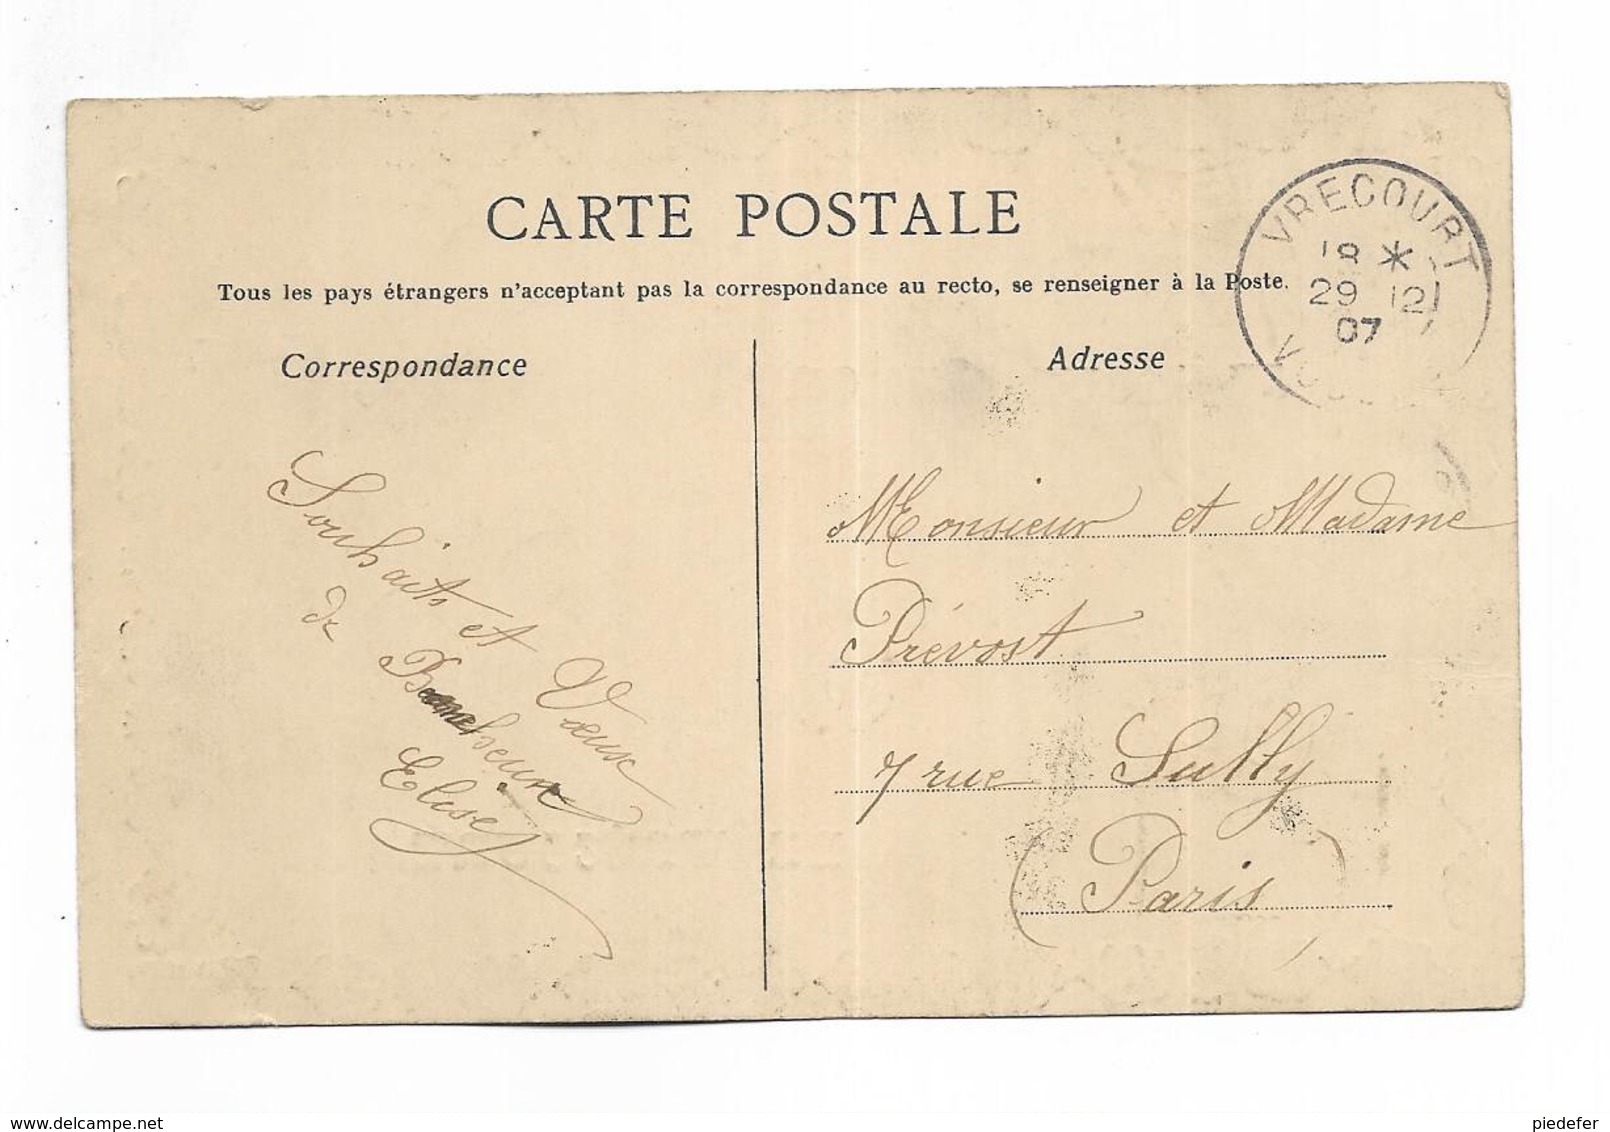 CARTE POSTALE
Tous les pays étrangers n'acceptant pas la correspondance au recto, se renseigner à la Poste.
VRECOURT
18 *
29 12
07
Correspondance
Adresse
Souhaits et Vœux
de
Elise
Monsieur et Madame
Prévost
7 rue Sully
(Paris)
www.delcampe.net
piedefer